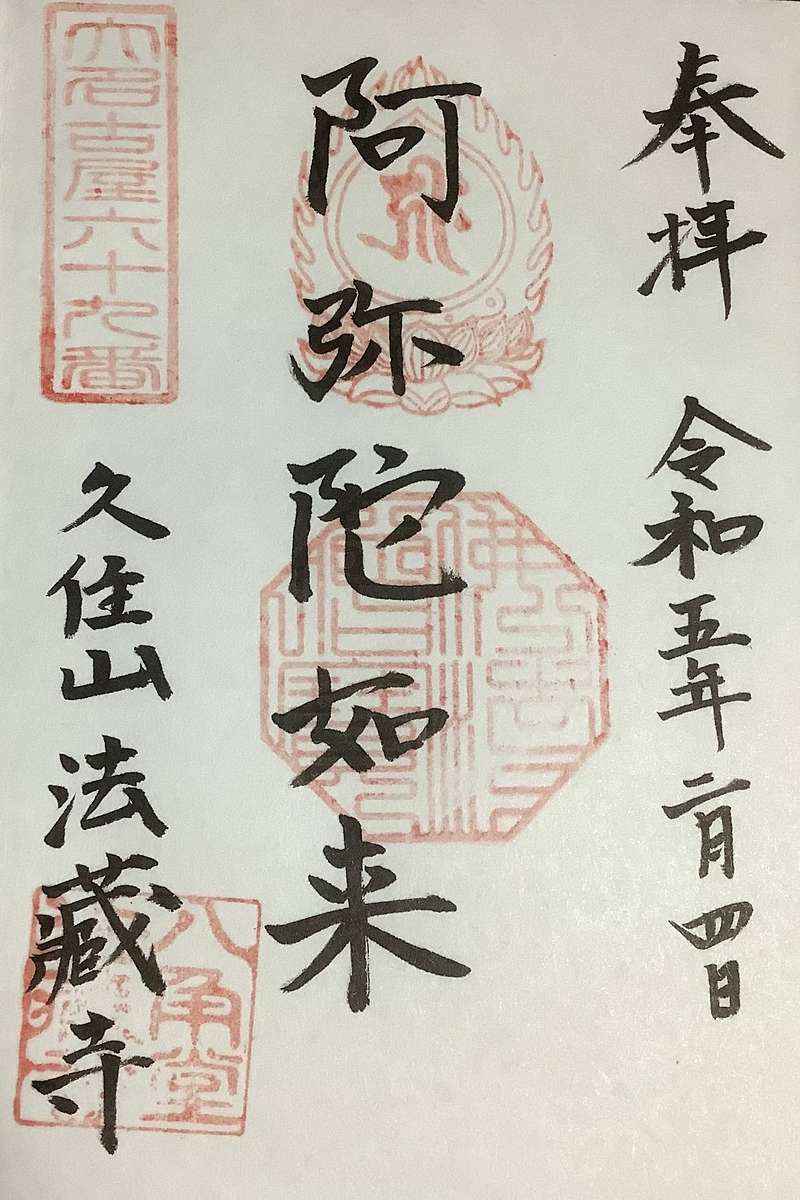 奉拝 令和五年二月四日
阿弥陀如来
大名古屋六十九番
久住山 法藏寺
八角堂